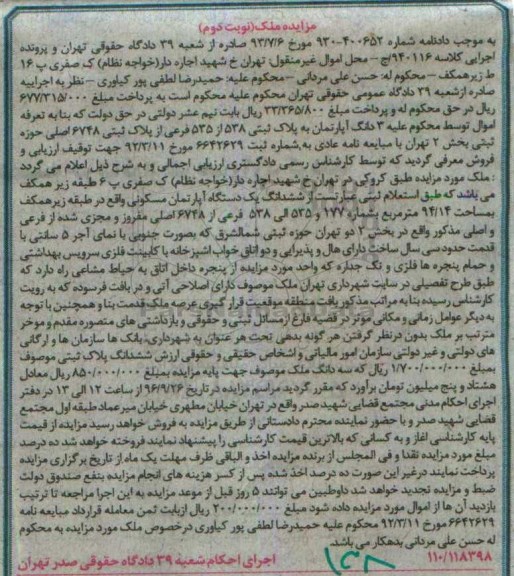 مزایده ملک(نوبت دوم)
به موجب دادنامه شماره ۹۳۰۰۴۰۰۶۵۲ مورخ ۹۳/۷/۶ صادره از شعبه ۳۹ دادگاه حقوقی تهران و پرونده
اجرایی کلاسه ۹۴۰۱۱۶/ج – محل اموال غیرمنقول: تهران خ شهید اجاره دار(خواجه نظام) ک صفری پ ۱۶
ط زیرهمکف – محکوم له: حسن علی مردانی – محکوم علیه: حمیدرضا لطفی پور کیاوری – نظر به اجراییه
صادره ازشعبه ۳۹ دادگاه عمومی حقوقی تهران محکوم علیه محکوم است به پرداخت مبلغ ۶۷۷/۳۱۵/۰۰۰
ریال در حق محکوم له و پرداخت مبلغ ۳۳/۳۶۵/۸۰۰ ریال بابت نیم عشر دولتی در حق دولت که بنا به تعرفه
اموال توسط محکوم علیه ۳ دانگ آپارتمان به پلاک ثبتی ۵۳۸ از ۵۳۵ فرعی از پلاک ثبتی ۶۷۴۸ اصلی حوزه
ثبتی بخش ۲ تهران با مبایعه نامه عادی به شماره ثبت ۶۶۴۲۶۲۹ مورخ ۹۲/۳/۱۱ جهت توقیف ارزیابی و
فروش معرفی گردید که توسط کارشناس رسمی دادگستری ارزیابی اجمالی و به شرح ذیل اعلام می گردد
: ملک مورد مزایده طبق کروکی در تهران خ شهید اجاره دار(خواجه نظام) ک صفری پ ۶ طبقه زیر همکف
می باشد که طبق استعلام ثبتی عبارتست از ششدانگ یک دستگاه آپارتمان مسکونی واقع در طبقه زیرهمکف
بمساحت ۹۴/۱۴ مترمربع بشماره ۱۷۷ و ۵۳۵ الی ۵۳۸ فرعی از ۶۷۴۸ اصلی مفروز و مجزی شده از فرعی
و اصلی مذکور واقع در بخش ۲ دو تهران حوزه ثبتی شمالشرق که بصورت جنوبی با نمای آجر ۵ سانتی با
قدمت حدود سی سال ساخت دارای هال و پذیرایی و دو اتاق خواب اشپزخانه با کابینت فلزی سرویس بهداشتی
و حمام پنجره ها فلزی و تک جداره که واحد مورد مزایده از پنجره داخل اتاق به حیاط مشاعی راه دارد که
طبق طرح تفصیلی در سایت شهرداری تهران ملک موصوف دارای اصلاحی آتی و در بافت فرسوده که به رویت
کارشناس رسیده بنا به مراتب مذکور بافت منطقه موقعیت قرار گیری عرصه ملک قدمت بنا و همچنین با توجه
به دیگر عوامل زمانی و مکانی موثر در قضیه فارغ ازمسائل ثبتی و حقوقی و بازداشتی های متصوره مقدم و موخر
مترتب بر ملک بدون درنظر گرفتن هر گونه بدهی تحت هر عنوان به شهرداری، بانک ها سازمان ها و ارگانی
های دولتی و غیر دولتی سازمان امور مالیاتی و اشخاص حقیقی و حقوقی ارزش ششدانگ پلاک ثبتی موصوف
بمبلغ ۱/۷۰۰/۰۰۰/۰۰۰ ریال که سه دانگ ملک موصوف جهت پایه مزایده بمبلغ ۸۵۰/۰۰۰/۰۰۰ ریال معادل
هشتاد و پنج میلیون تومان برآورد که مقرر گردید مراسم مزایده در تاریخ ۹۶/۹/۲۶ از ساعت ۱۲ الی ۱۳ در دفتر
اجرای احکام مدنی مجتمع قضایی شهید صدر واقع در تهران خیابان مطهری خیابان میرعماد طبقه اول مجتمع
قضایی شهید صدر و با حضور نماینده محترم دادستانی از طریق مزایده به فروش خواهد رسید مزایده از قیمت
پایه کارشناسی اغاز و به کسانی که بالاترین قیمت کارشناسی را پیشنهاد نمایند فروخته خواهد شد ده درصد
مبلغ مورد مزایده نقدا و فی المجلس از برنده مزایده اخذ و الباقی ظرف مهلت یک ماه از تاریخ برگزاری مزایده
پرداخت نمایند درغیر این صورت ده درصد اخذ شده پس از کسر هزینه های انجام مزایده بنفع صندوق دولت
ضبط و مزایده تجدید خواهد شد داوطلبین می توانند ۵ روز قبل از موعد مزایده به این اجرا مراجعه تا ترتیب
بازدید آن ها از اموال مورد مزایده داده شود مبلغ ۲۰۰/۰۰۰/۰۰۰ ریال ازبابت ثمن معامله قرارداد مبایعه نامه
۶۶۴۲۶۲۹ مورخ ۹۲/۳/۱۱ محکوم علیه حمیدرضا لطفی پور کیاوری درخصوص ملک مورد مزایده به محکوم
له حسن علی مردانی بدهکار می باشد.
۱۱۰/۱۱۸۳۹۸ اجرای احکام شعبه ۳۹ دادگاه حقوقی صدر تهران